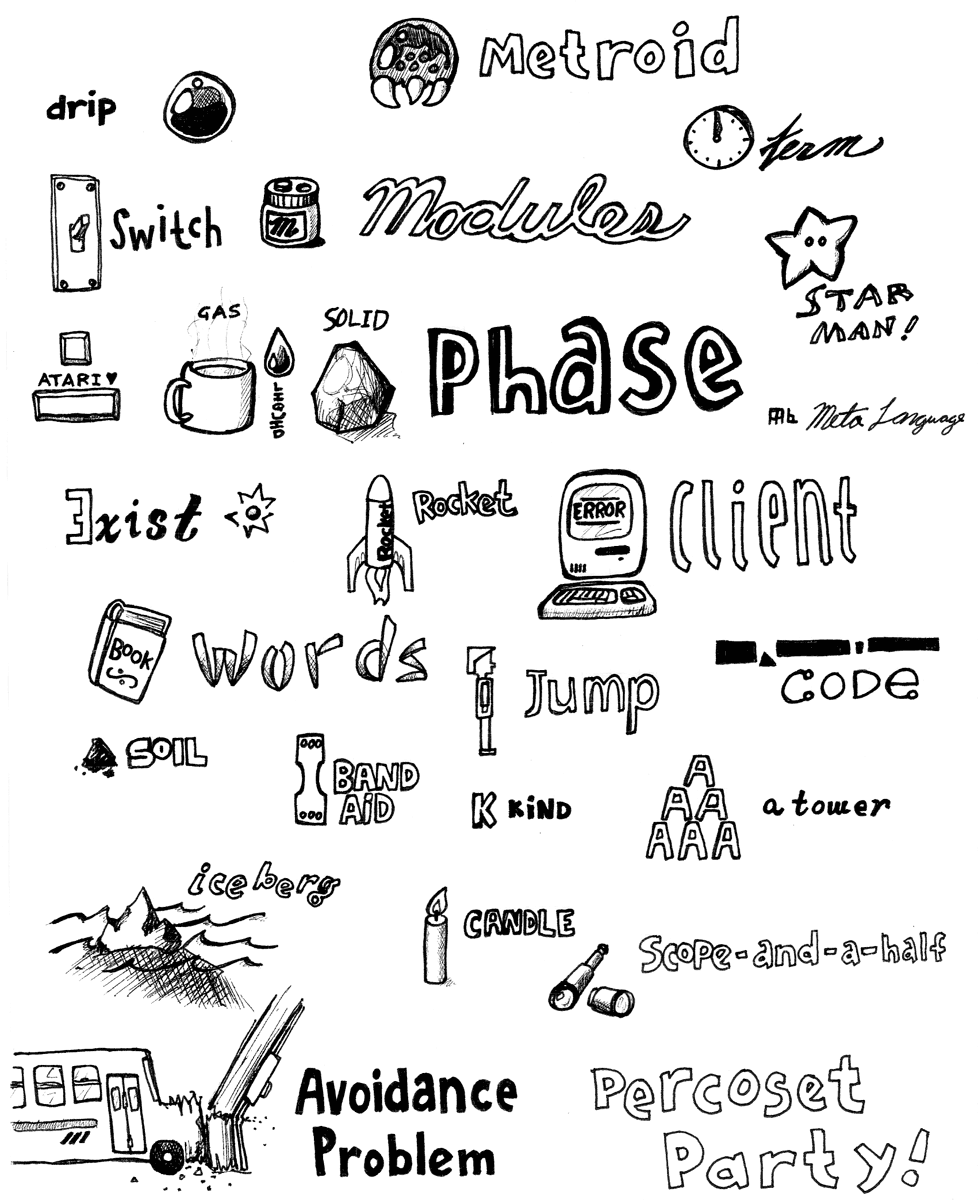 Metroid
drip
term
Switch
m
Modules
STAR
MAN!
GAS
SOLID
Phase
ATARI♥
Meta Language
Exist
Rocket
Rocket
ERROR
Client
BOOK
Words
Jump
CODE
SOIL
BAND
AID
K KIND
A
AA
AAA
a tower
iceberg
CANDLE
Scope-and-a-half
Avoidance
Problem
Percoset
Party!